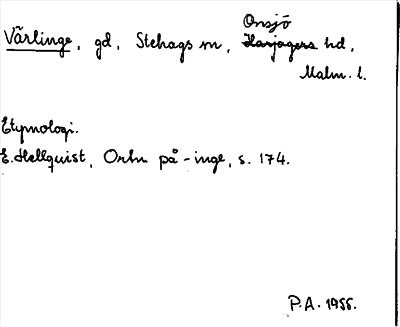 Onsjö
Värlinge, gd, Stehags sn, Harjagers hd,
Malm. l.
Etymologi.
E. Hellquist, Ortn på -inge, s. 174.
P.A. 1955.